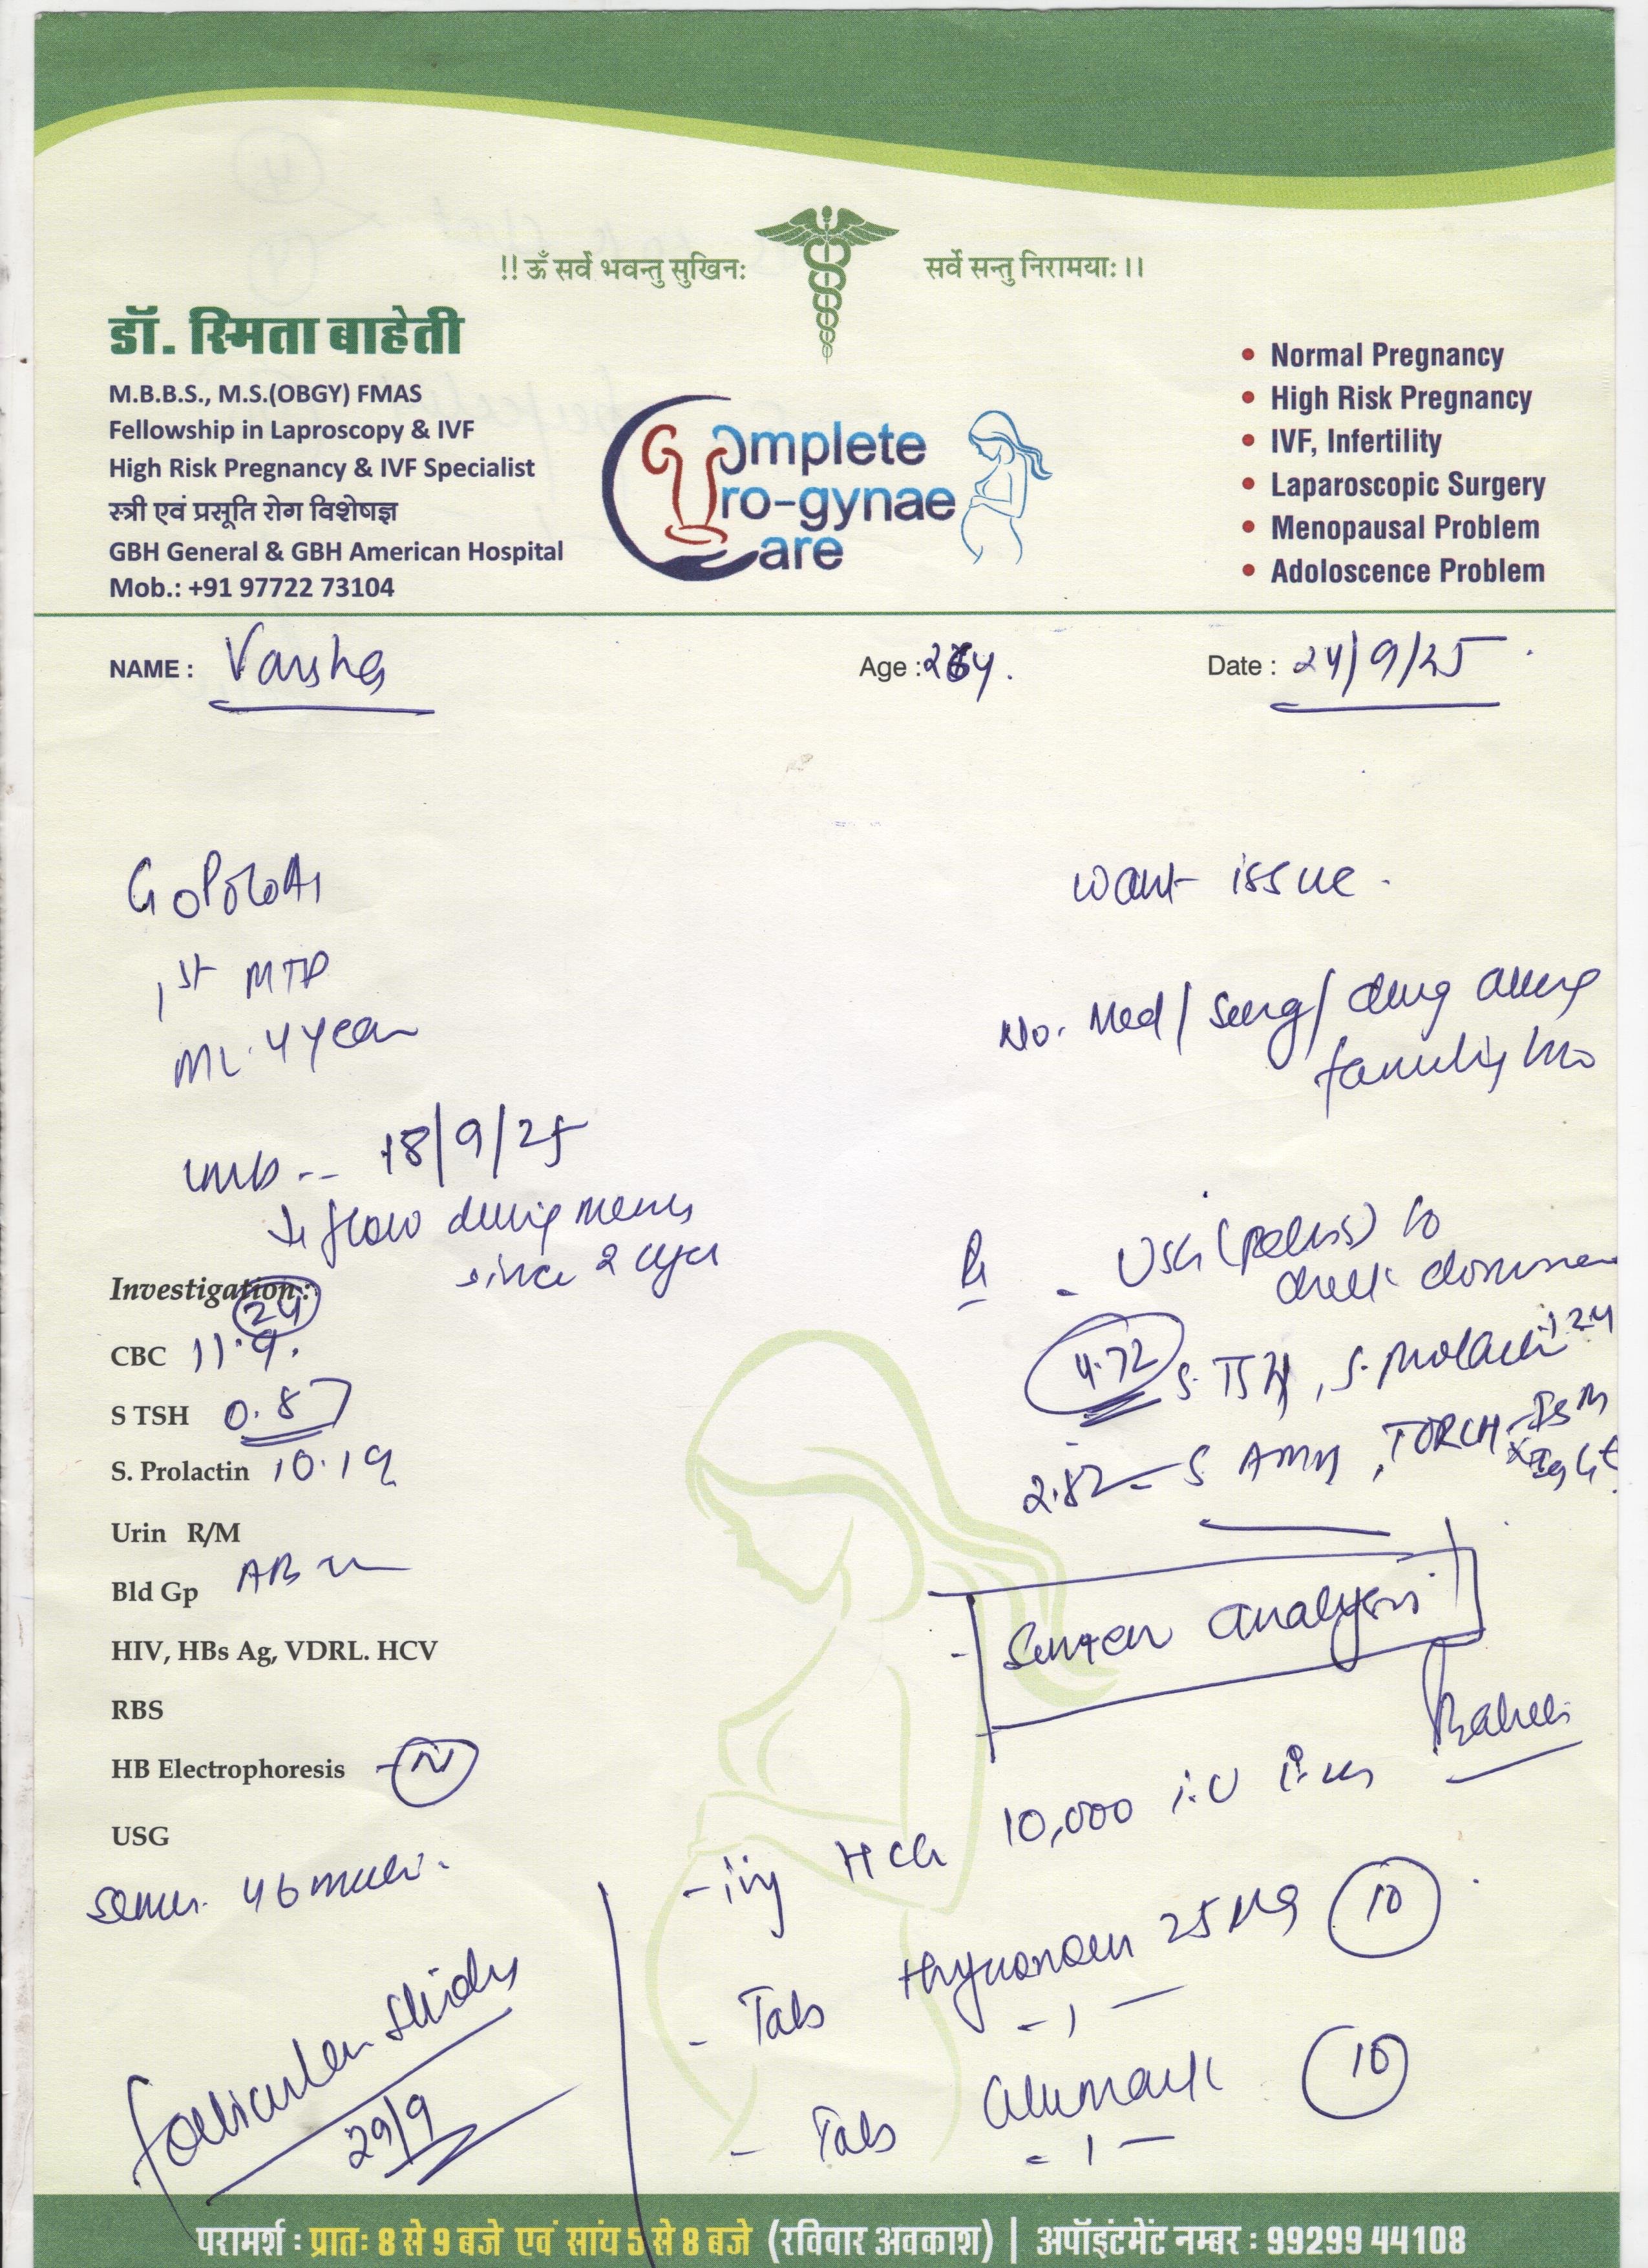 !! ॐ सर्वे भवन्तु सुखिनः
सर्वे सन्तु निरामयाः ।।
डॉ. स्मिता बाहेती
M.B.B.S., M.S.(OBGY) FMAS
Fellowship in Laproscopy & IVF
High Risk Pregnancy & IVF Specialist
स्त्री एवं प्रसूति रोग विशेषज्ञ
GBH General & GBH American Hospital
Mob.: +91 97722 73104
Complete
Uro-gynae
Care
• Normal Pregnancy
• High Risk Pregnancy
• IVF, Infertility
• Laparoscopic Surgery
• Menopausal Problem
• Adoloscence Problem
NAME : Varsha
Age :
Date : 24/9/25
G0P0L0A1
1st MTP
ML. 4 year
want issue.
No. Med / Surg / drug allergy
family h/o
LMP -- 18/9/25
↓ flow during menses
since 2 cycles
Investigation :
24
CBC 11.9.
S TSH 0.87
S. Prolactin 10.19
Urin R/M
Bld Gp AB
HIV, HBs Ag, VDRL. HCV
RBS
HB Electrophoresis - N
USG
Semen. 46 mill.
Follicular study
29/9
R - USG (pelvis) to
check
4.72 S. TSH, S. Prolactin
2.82 - S AMH, TORCH - IgM
IgG
- Semen analysis
Baheti
- inj HCG 10,000 i.U i.m
- Tab Thyronorm 25 µg 10
- 1 -
- Tab 10
- 1 -
परामर्श : प्रातः 8 से 9 बजे एवं सांय 5 से 8 बजे (रविवार अवकाश) | अपॉइंटमेंट नम्बर : 99299 44108